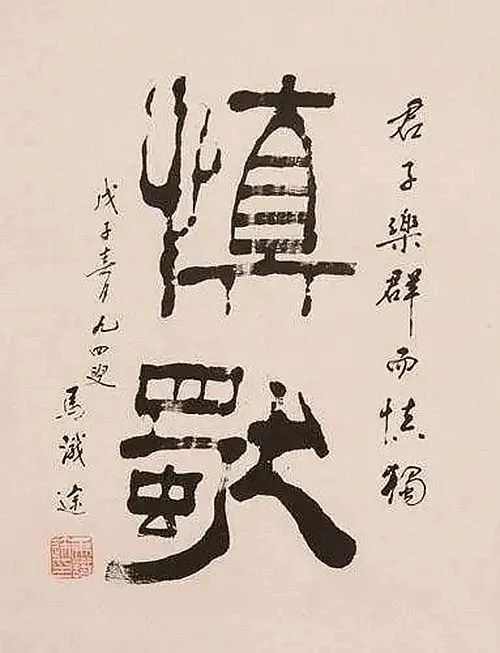 君子樂群而慎獨
慎獨
戊子春月九四叟馬識途